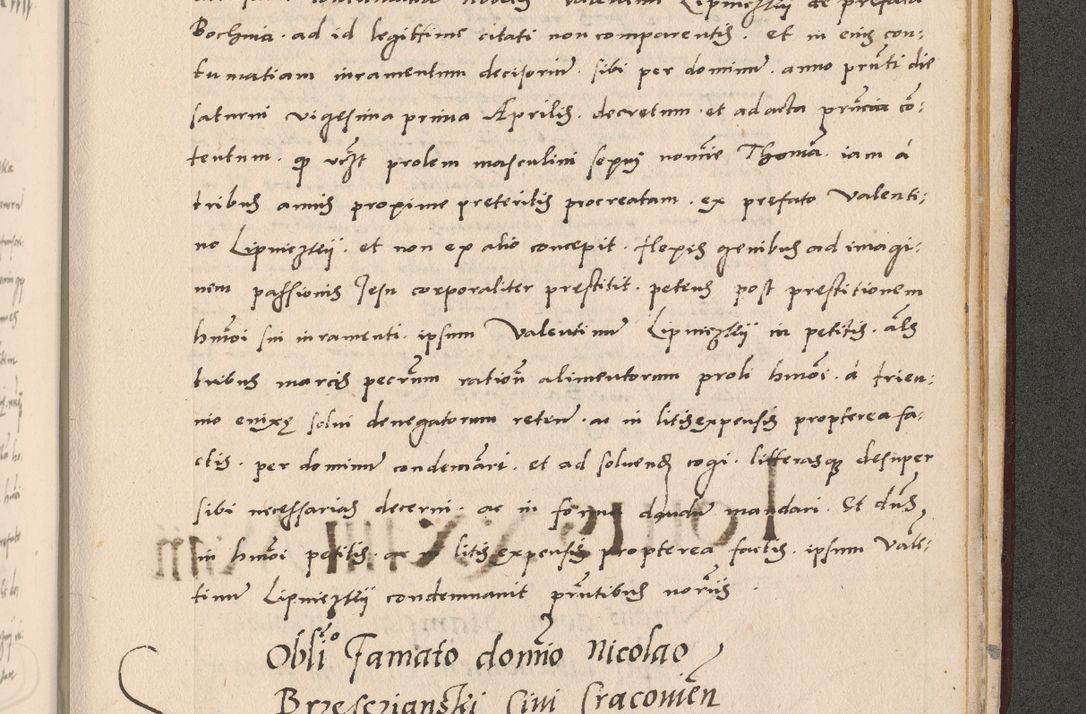 Bochnia . ad id legittime citati non comparentis . et in eius con:
tumatiam iuramentum decisorium . sibi per dominum . anno prnti die
saturni vigesima prima Aprilis . decretum . et ad acta prncia cō:
tentum . prolem masculini sexus nomīe Thomā . iam á
tribus annis proxime preteritis procreatam . ex prefato Valenti:
no Lipniczkij . et non ex alio concepit . flexis genibus ad imagi:
nem passionis Jesu corporaliter prestitit . petens post prestitionem
hmōi sui iuramenti . ipsum Valentinum Lipniczkij in petitis . als
tribus marcis pecrum rationē alimentorum proli hmōi . á trien:
nio enixę solui denegatorum reten . ac in litisexpensis propterea fa:
ctis . per dominum condemnari . et ad soluend cogi . litterasque desuper
sibi necessarias decerni . ac in forma mandari . Et dns
in hmōi petitis . ac in litisexpensis propterea factis . ipsum Valē:
tinum Lipniczkij condemnauit prntibus norijs .
Obliō famato domīo Nicolao
Brzesczianski Ciui Cracouien